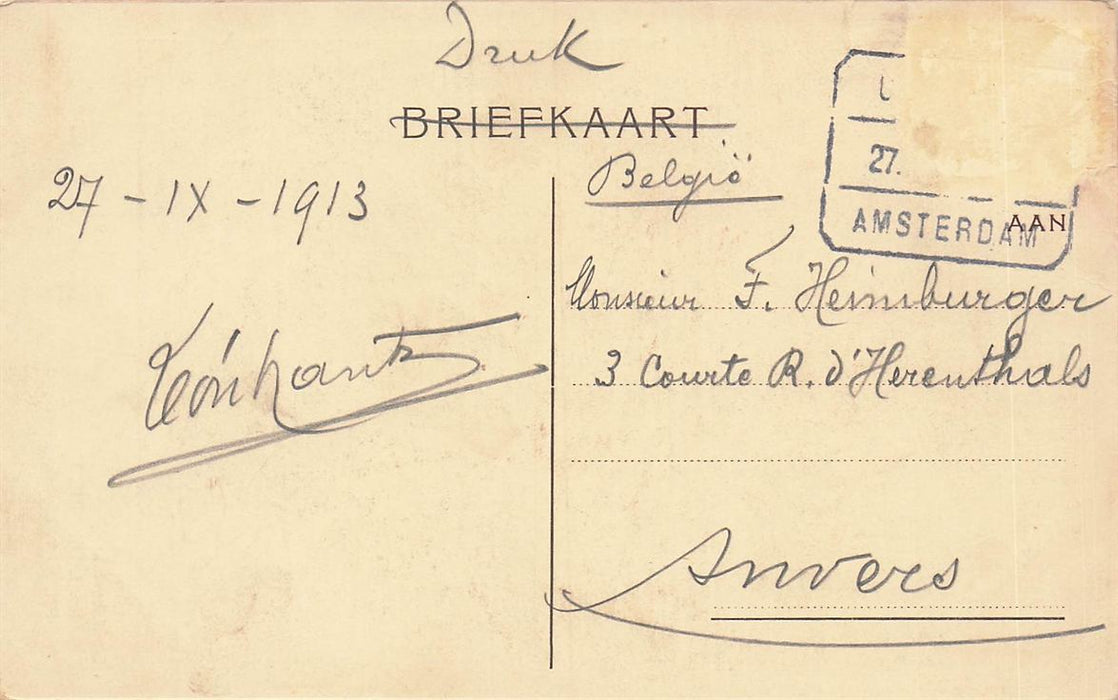 Druk
BRIEFKAART
27 - IX - 1913
België
27.
AMSTERDAM
AAN
Monsieur F. Heimburger
3 Courte R. d'Herenthals
Anvers